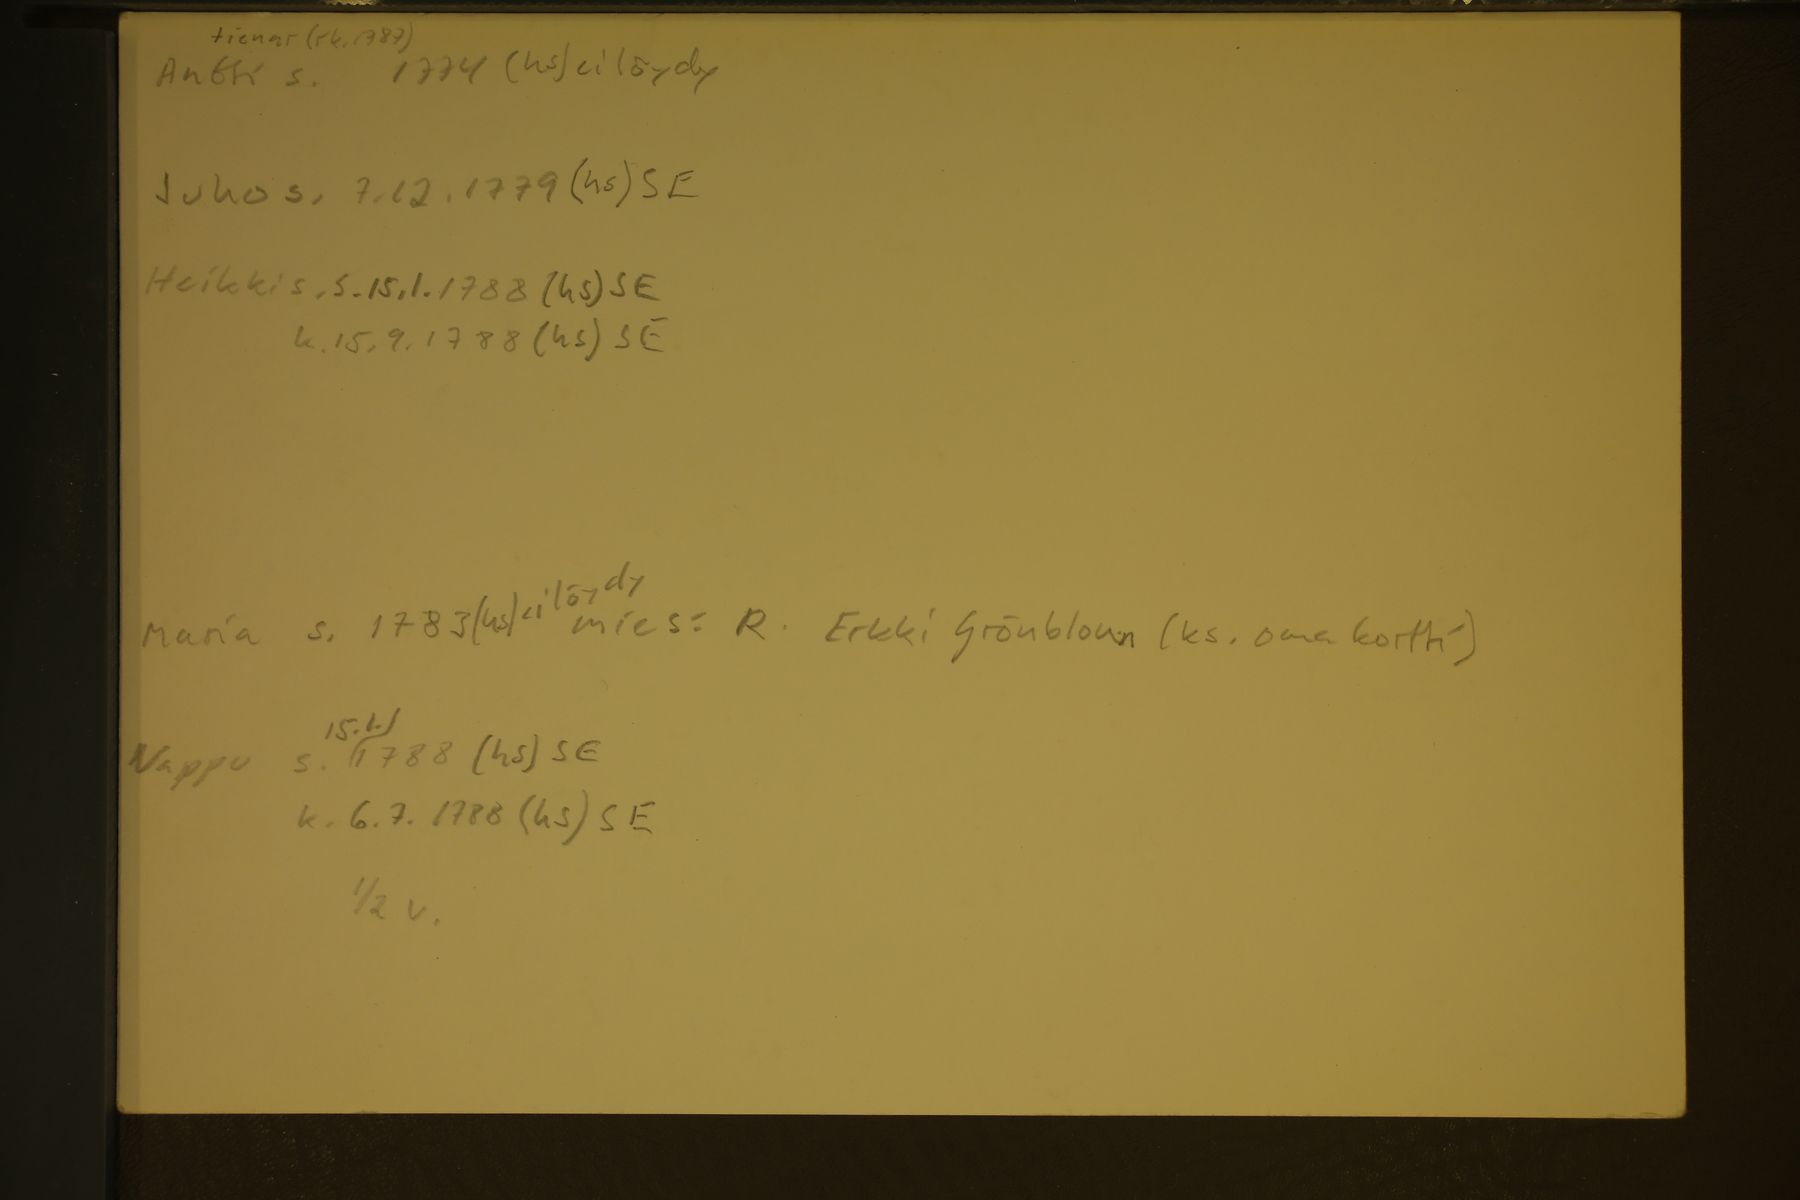 tienar (rk. 1787)
Antti s. 1774 (hs) ei löydy
Juho s. 7.12.1779 (hs) SE
Heikki s. s. 15.1.1788 (hs) SE
k. 15.9.1788 (hs) SE
Maria s. 1783 (hs) ei löydy mies: R. Erkki Grönblom (ks. oma kortti)
15.1.
Vappu s. 1788 (hs) SE
k. 6.7. 1788 (hs) SE
1/2 v.